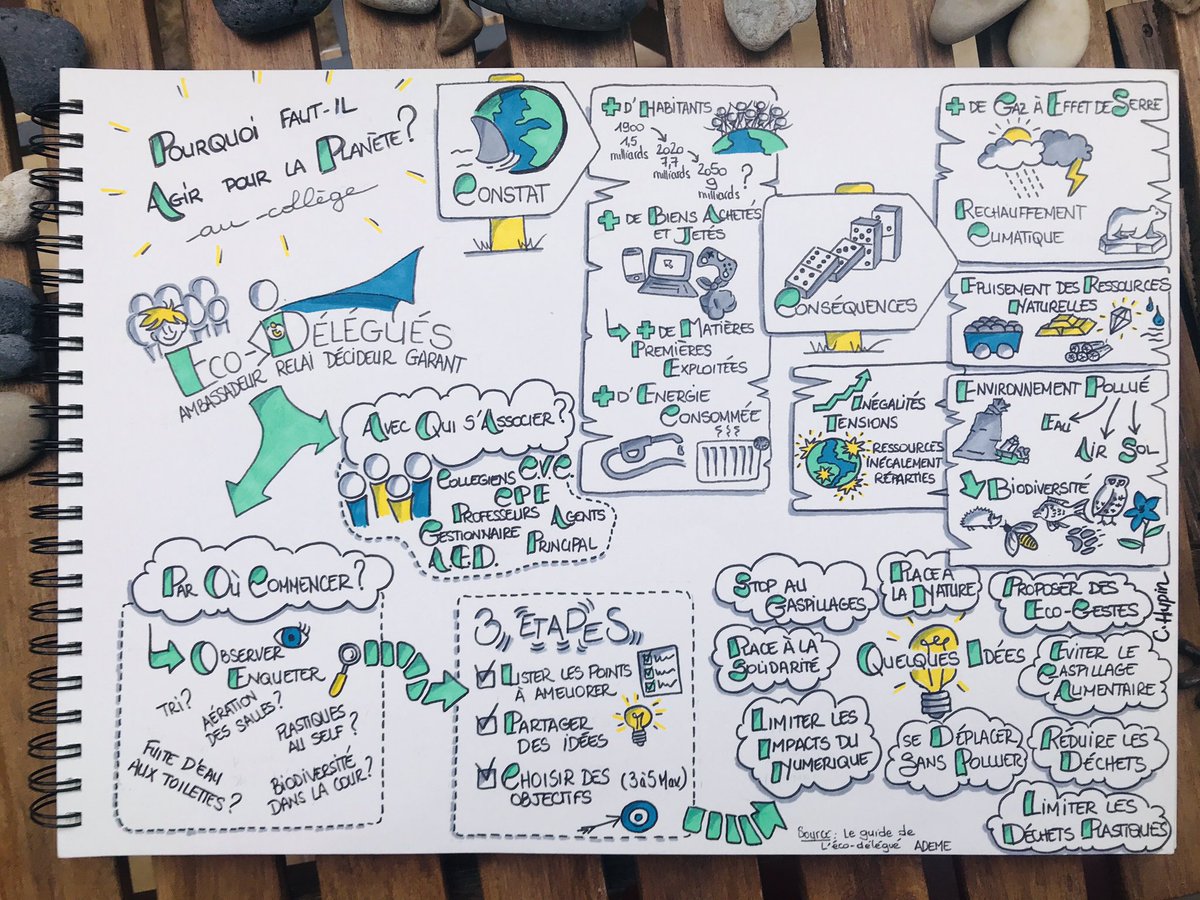 POURQUOI FAUT-IL
AGIR POUR LA PLANÈTE ?
au collège
ECO-DÉLÉGUÉS
AMBASSADEUR RELAI DÉCIDEUR GARANT
CONSTAT
+ D'HABITANTS
1900
1,5
milliards
2020
7,7
milliards
2050
9
milliards
?
+ DE BIENS ACHETÉS
ET JETÉS
+ DE MATIÈRES
PREMIÈRES
EXPLOITÉES
+ D'ENERGIE
CONSOMMÉE
CONSÉQUENCES
+ DE GAZ À EFFET DE SERRE
RECHAUFFEMENT
CLIMATIQUE
EPUISEMENT DES RESSOURCES
NATURELLES
INÉGALITÉS
TENSIONS
RESSOURCES
INÉGALEMENT
RÉPARTIES
ENVIRONNEMENT POLLUÉ
EAU
AIR SOL
BIODIVERSITÉ
AVEC QUI S'ASSOCIER ?
COLLEGIENS CVC
CPE
PROFESSEURS AGENTS
GESTIONNAIRE PRINCIPAL
A.E.D.
PAR OÙ COMMENCER ?
OBSERVER
ENQUETER
TRI ?
AÉRATION
DES SALLES ?
PLASTIQUES
AU SELF ?
FUITE D'EAU
AUX TOILETTES ?
BIODIVERSITÉ
DANS LA COUR ?
3 ETAPES
LISTER LES POINTS
À AMELIORER
PARTAGER
DES IDÉES
CHOISIR DES (3 à 5 Max)
OBJECTIFS
QUELQUES IDÉES
STOP AU
GASPILLAGES
PLACE À
LA NATURE
PROPOSER DES
ECO-GESTES
PLACE À LA
SOLIDARITÉ
EVITER LE
GASPILLAGE
ALIMENTAIRE
LIMITER LES
IMPACTS DU
NUMERIQUE
SE DÉPLACER
SANS POLLUER
RÉDUIRE LES
DÉCHETS
LIMITER LES
DÉCHETS PLASTIQUES
Source : Le guide de
L'éco-délégué ADEME
C. Hupin